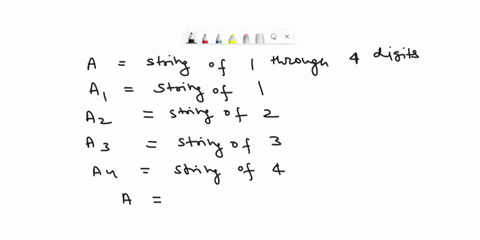 A = string of 1 through 4 digits
A1 = string of 1
A2 = string of 2
A3 = string of 3
A4 = string of 4
A =